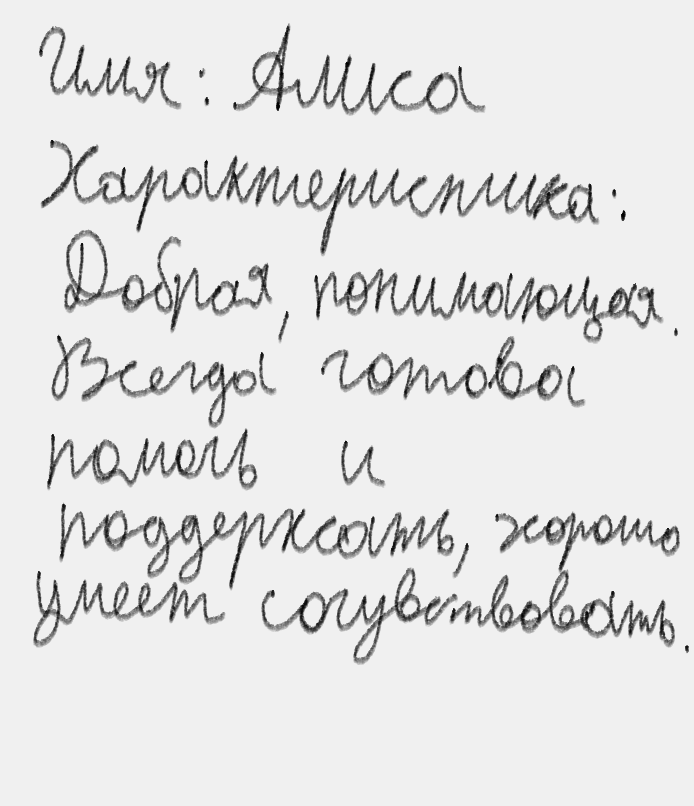 Имя: Алиса
Характеристика:
Добрая, понимающая.
Всегда готова
помочь и
поддержать, хорошо
умеет сочувствовать.